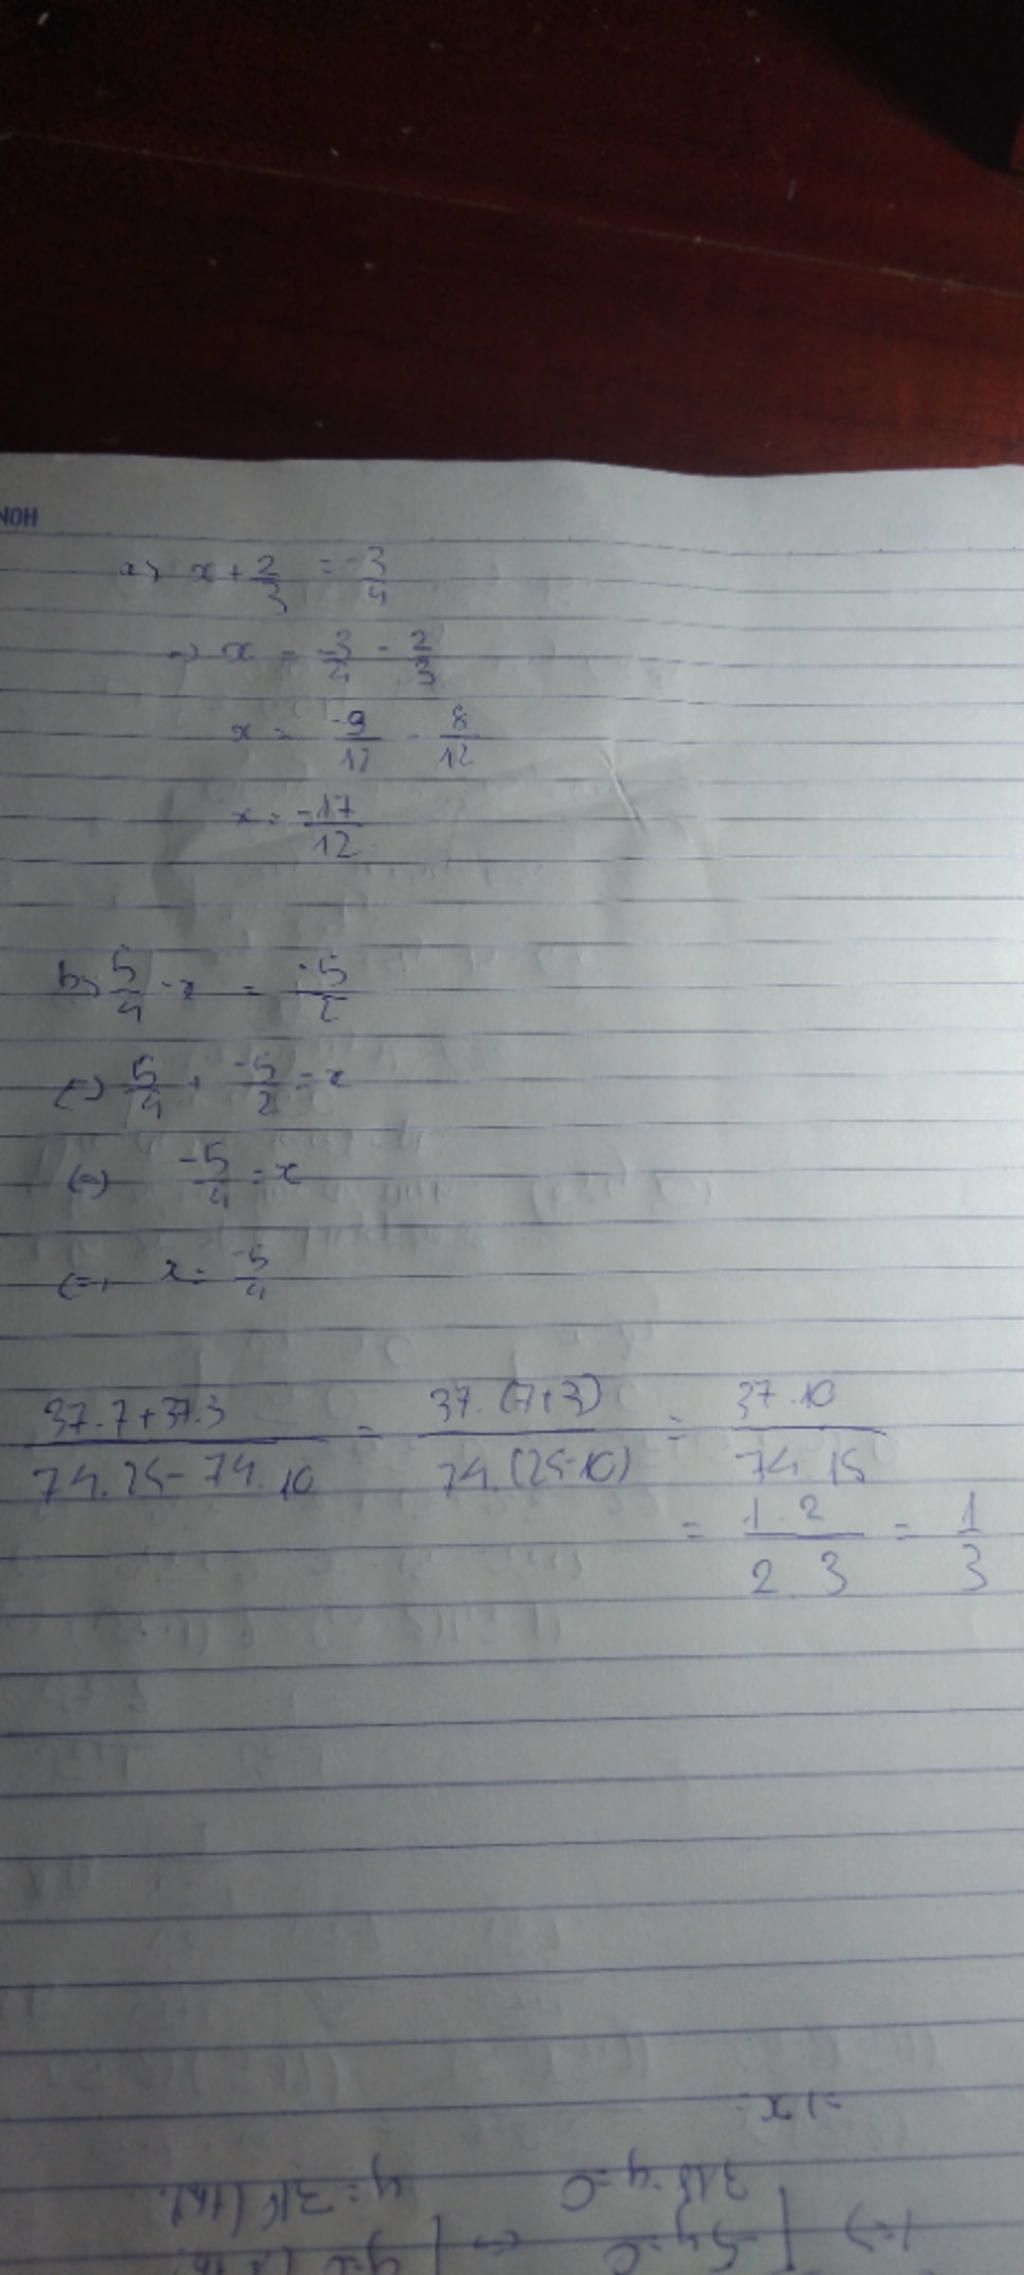 NOH
a) x + 2/3 = -3/4
=> x = -3/4 - 2/3
x = -9/12 - 8/12
x = -17/12
b) 5/4 - x = -5/2
<=> 5/4 + -5/2 = x
<=> -5/4 = x
<=> x = -5/4
37.7+37.3 / 74.25-74.10 = 37.(7+3) / 74.(25-10) = 37.10 / 74.15
= 1.2 / 2.3 = 1/3